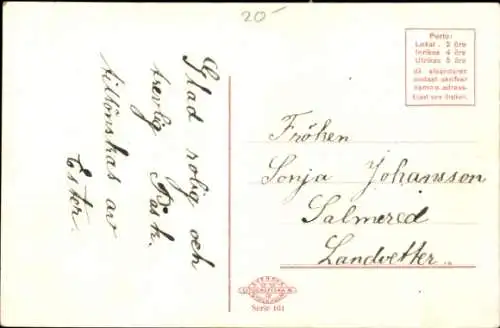 20-
Glad rolig och
trevlig Påsk.
tillönskas av
Ester.
Porto:
Lokal . 2 öre
Inrikes 4 öre
Utrikes 5 öre
då afsändaren
endast skrifver
namn o. adress.
Fröken
Sonja Johansson
Salmered
Landvetter.
Serie 101